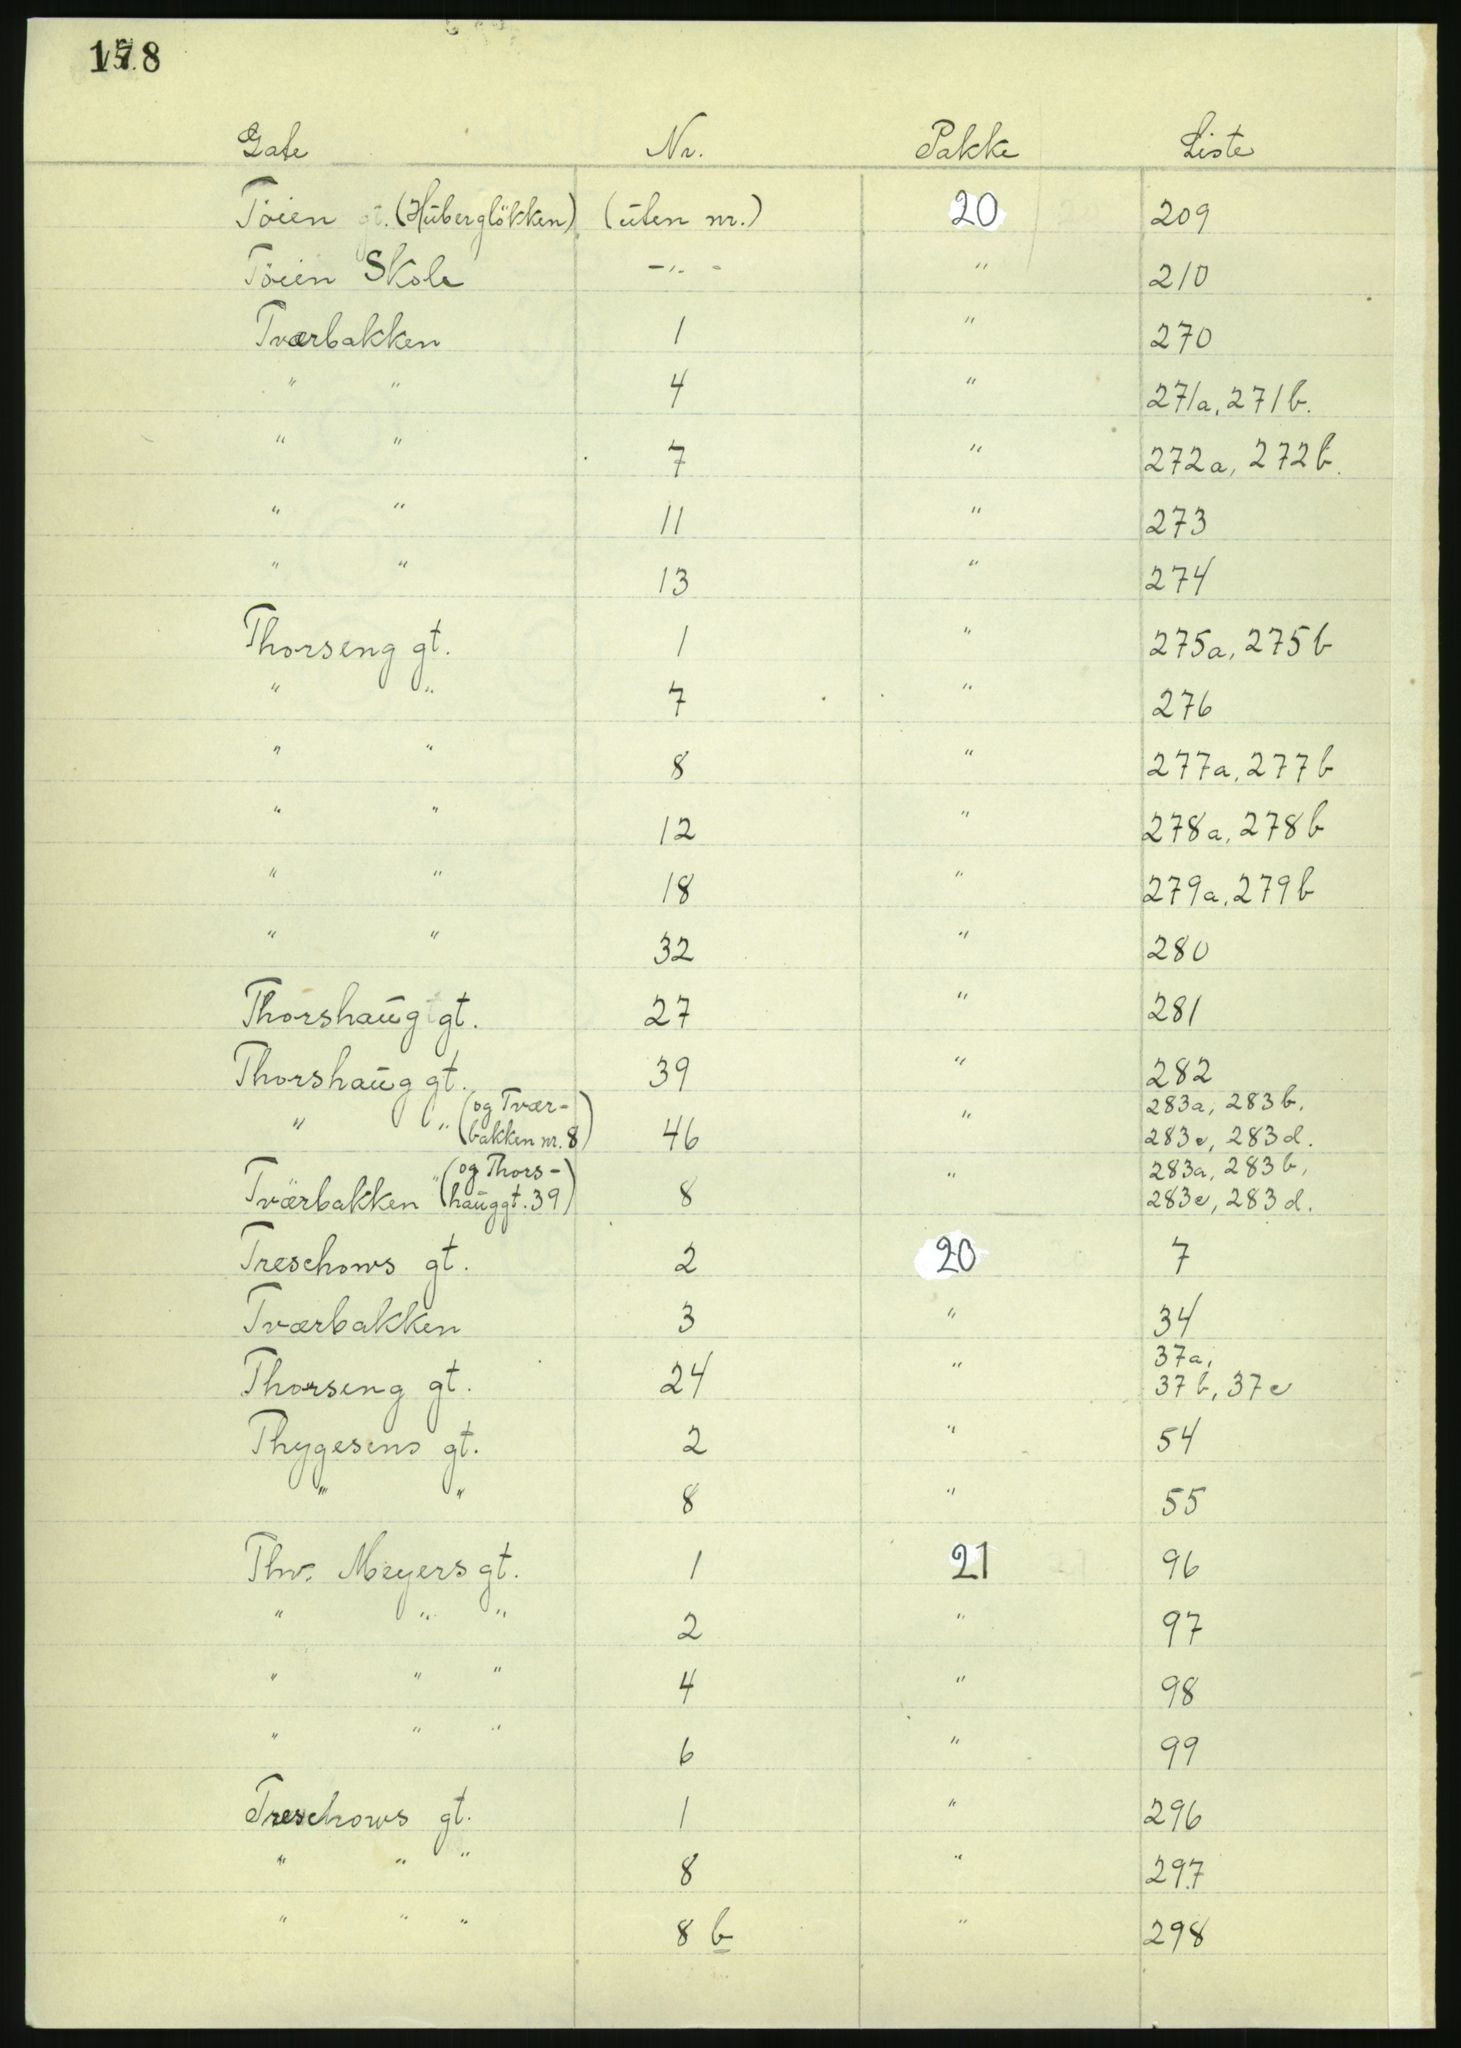 178
Gate Nr. Pakke Liste
Töien gt. (Hüberglökken) (üten nr.) 20 209
Töien Skole -"- " 210
Tværbakken 1 " 270
" " 4 " 271a, 271b.
" " 7 " 272a, 272b.
" " 11 " 273
" " 13 " 274
Thorseng gt. 1 " 275a, 275b
" " 7 " 276
" " 8 " 277a, 277b
" " 12 " 278a, 278b
" " 18 " 279a, 279b
" " 32 " 280
Thorshaüg gt. 27 " 281
Thorshaüg gt. 39 " 282
" " (og Tvær- 283a, 283b.
bakken nr. 8) 46 " 283c, 283d.
(og Thors- 283a, 283b,
Tværbakken " haüggt. 39) 8 " 283c, 283d.
Treschows gt. 2 20 7
Tværbakken 3 " 34
37a,
Thorseng gt. 24 " 37b, 37c
Thygesens gt. 2 " 54
" " 8 " 55
Thv. Meyers gt. 1 21 96
" " " 2 " 97
" " " 4 " 98
" " " 6 " 99
Treschows gt. 1 " 296
" " " 8 " 297
" " " 8 b " 298